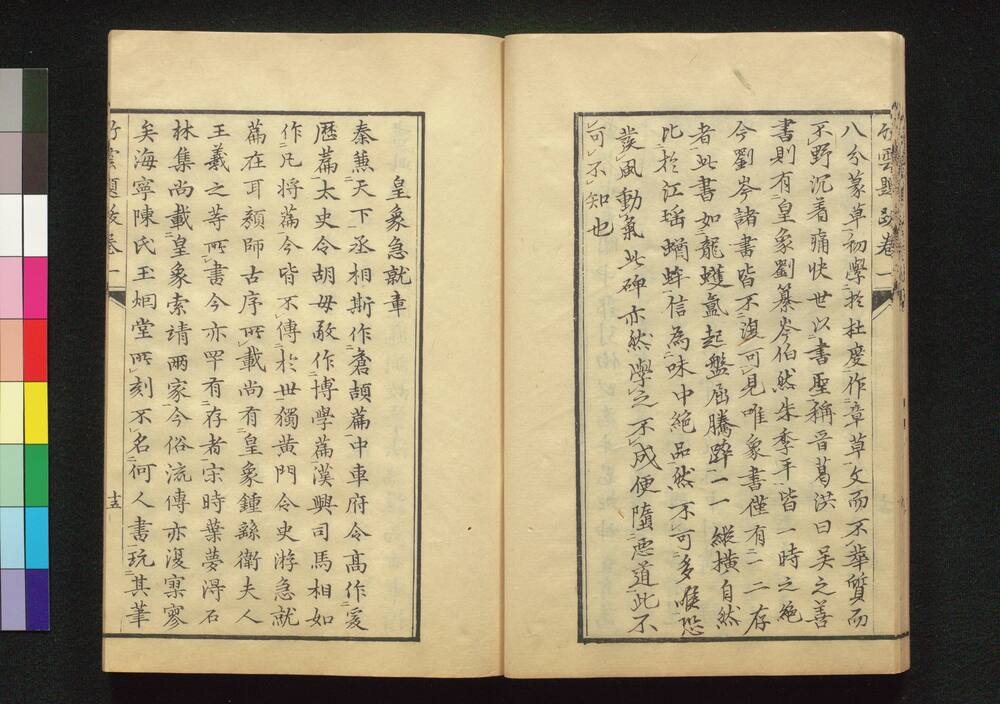 竹雲題跋卷一
八分篆草初學於杜度作章草文而不華質而
不野沉着痛快世以書聖稱晉葛洪曰吴之善
書則有皇象劉纂岑伯然朱季平皆一時之絶
今劉岑諸書皆不復可見唯象書僅有一二存
者此書如龍蠖蟄起盤屈騰踔一一縱橫自然
比於江瑤蝤蛑信為味中絶品然不可多噉恐
發風動氣此碑亦然學之不成便墮惡道此不
可不知也
皇象急就章
秦蕉天下丞相斯作倉頡篇中車府令高作爰
歷篇太史令胡毋敬作博學篇漢興司馬相如
作凡将篇今皆不傳於世獨黄門令史游急就
篇在耳顔師古序所載尚有皇象鍾繇衛夫人
王羲之等所書今亦罕有存者宋時葉夢得石
林集尚載皇象索靖兩家今俗流傳亦復寥寥
矣海寧陳氏玉烟堂所刻不名何人書玩其筆
竹雲題跋卷一
十五